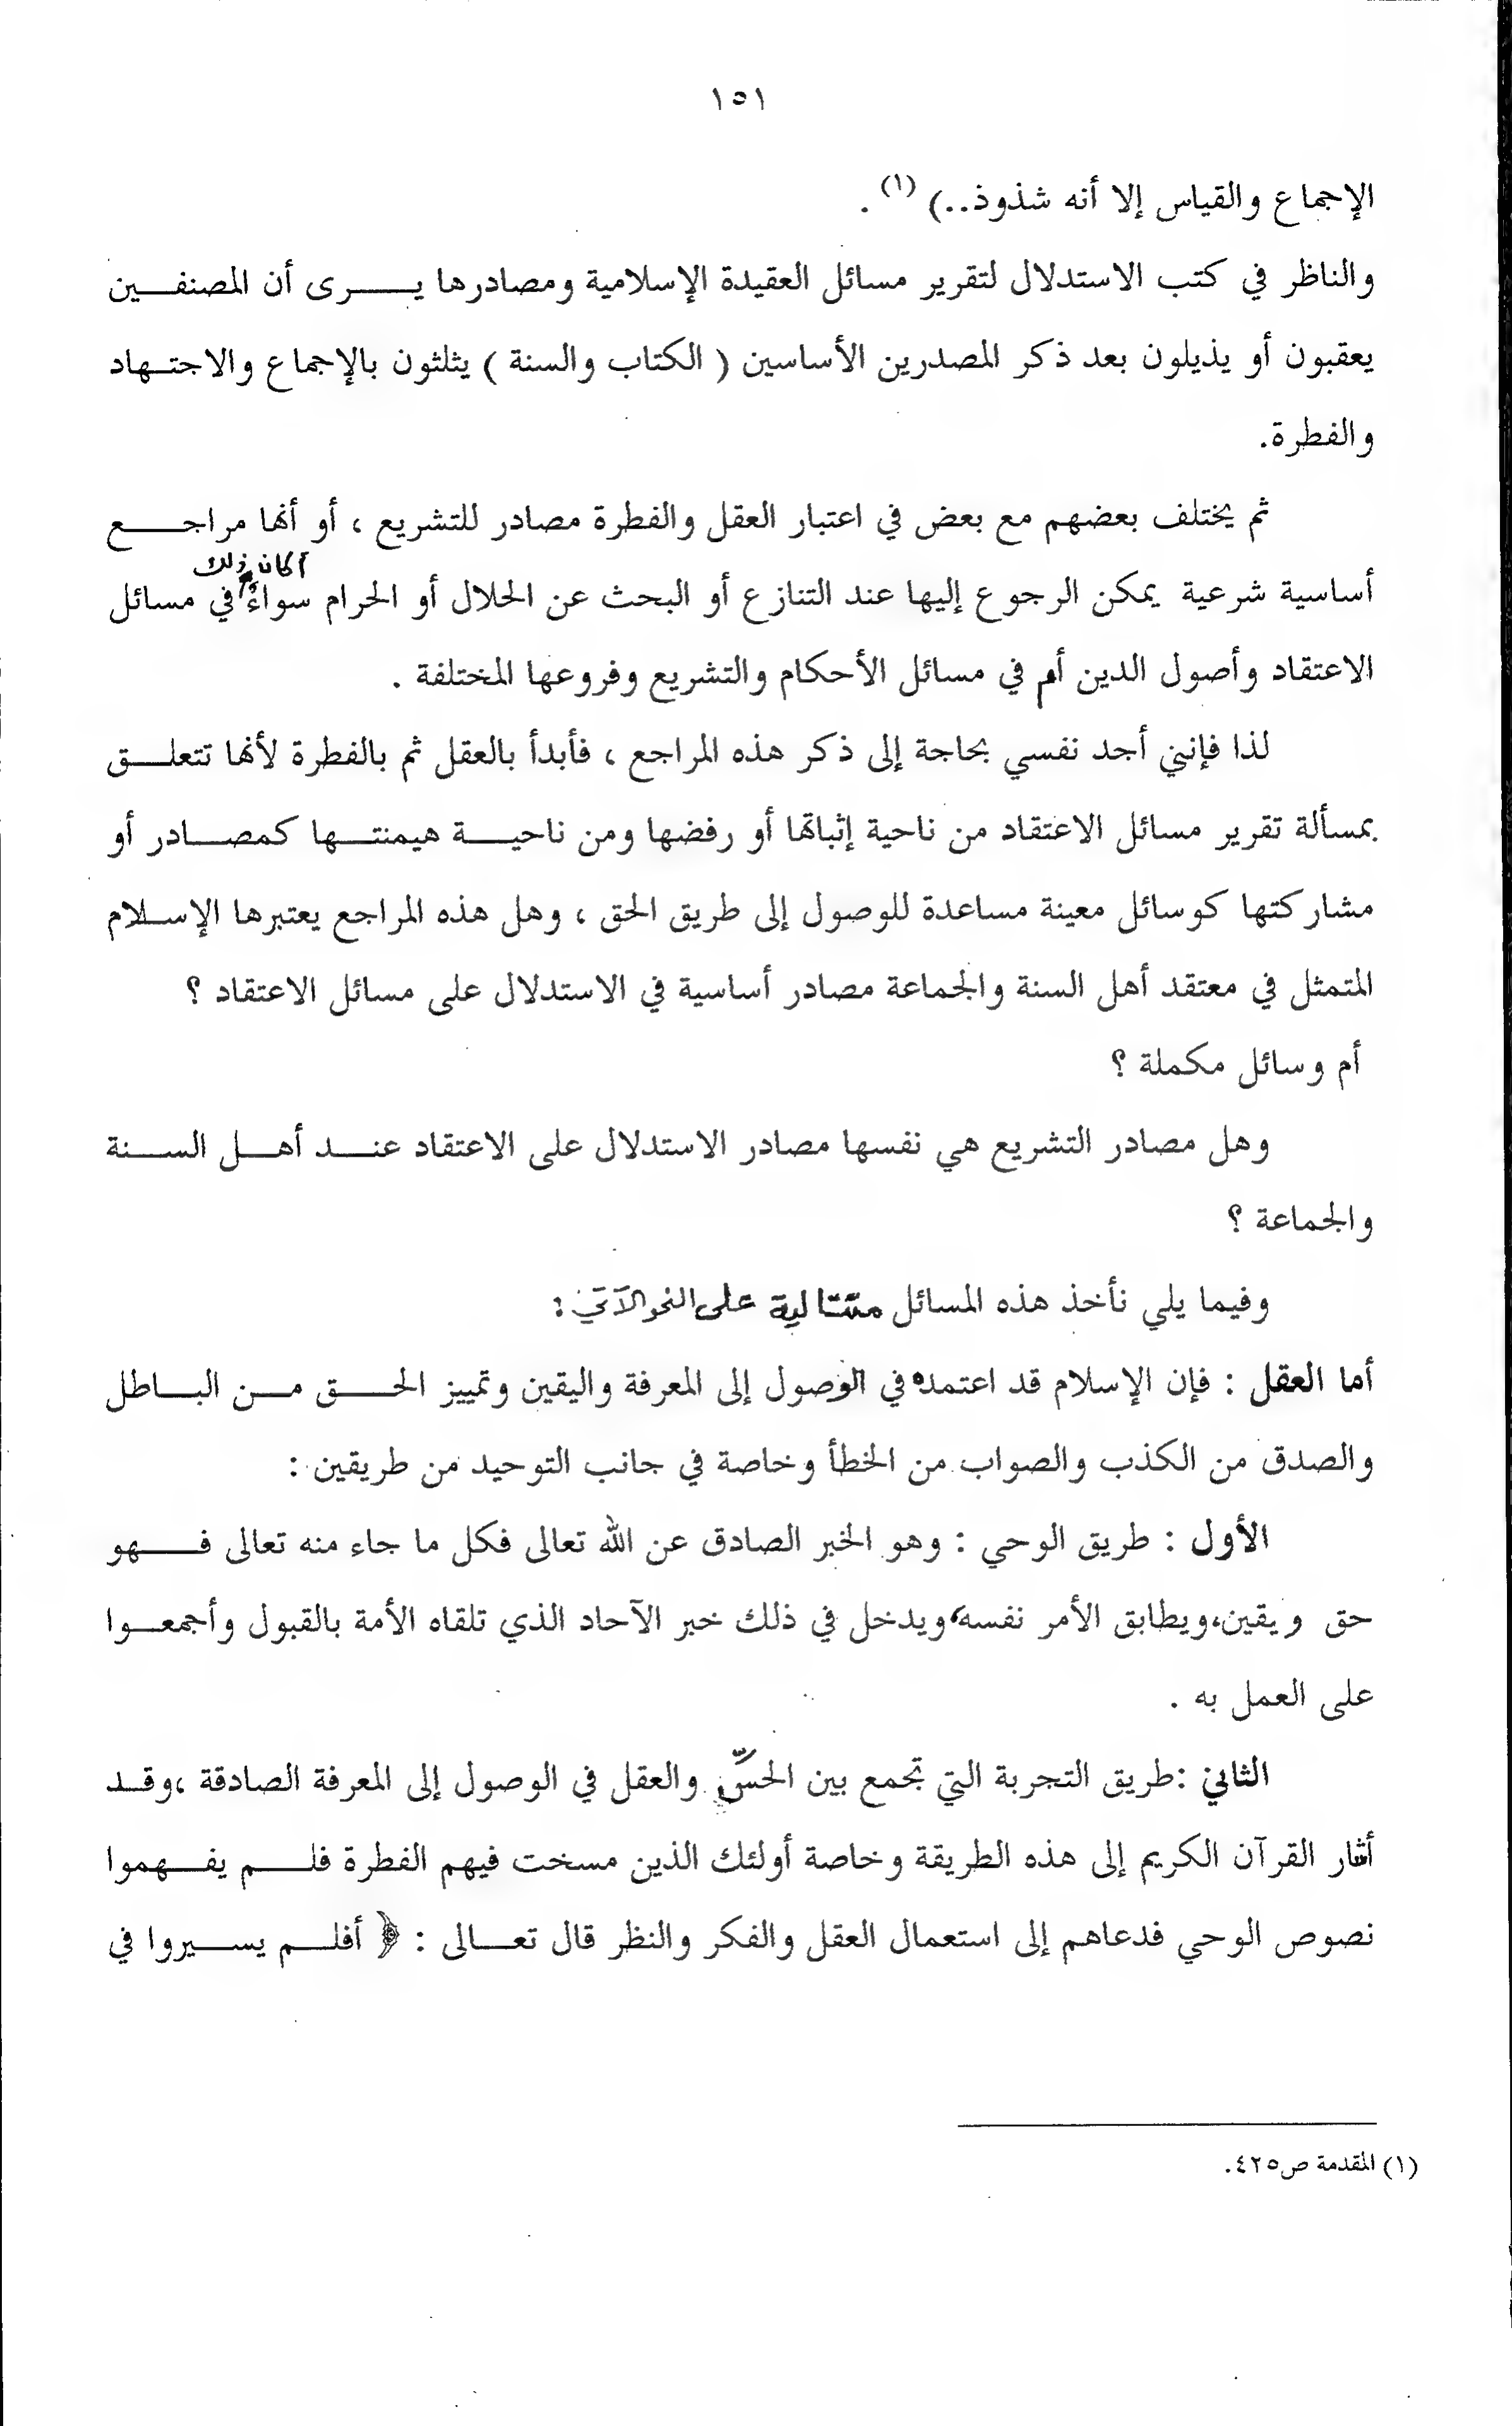 ١٥١
الإجماع والقياس إلا أنه شذوذ..) (١) .
والناظر في كتب الاستدلال لتقرير مسائل العقيدة الإسلامية ومصادرها يرى أن المصنفين
يعقبون أو يذيلون بعد ذكر المصدرين الأساسين ( الكتاب والسنة ) يثلثون بالإجماع والاجتهاد
والفطرة.
ثم يختلف بعضهم مع بعض في اعتبار العقل والفطرة مصادر للتشريع ، أو أنها مراجع
أكان ذلك
أساسية شرعية يمكن الرجوع إليها عند التنازع أو البحث عن الحلال أو الحرام سواءٌ في مسائل
الاعتقاد وأصول الدين أم في مسائل الأحكام والتشريع وفروعها المختلفة .
لذا فإنني أجد نفسي بحاجة إلى ذكر هذه المراجع ، فأبدأ بالعقل ثم بالفطرة لأنها تتعلق
بمسألة تقرير مسائل الاعتقاد من ناحية إثباتها أو رفضها ومن ناحية هيمنتها كمصادر أو
مشاركتها كوسائل معينة مساعدة للوصول إلى طريق الحق ، وهل هذه المراجع يعتبرها الإسلام
المتمثل في معتقد أهل السنة والجماعة مصادر أساسية في الاستدلال على مسائل الاعتقاد ؟
أم وسائل مكملة ؟
وهل مصادر التشريع هي نفسها مصادر الاستدلال على الاعتقاد عند أهل السنة
والجماعة ؟
وفيما يلي نأخذ هذه المسائل متتالية على النحو الآتي :
أما العقل : فإن الإسلام قد اعتمده في الوصول إلى المعرفة واليقين وتمييز الحق من الباطل
والصدق من الكذب والصواب من الخطأ وخاصة في جانب التوحيد من طريقين :
الأول : طريق الوحي : وهو الخبر الصادق عن الله تعالى فكل ما جاء منه تعالى فهو
حق ويقين،ويطابق الأمر نفسه،ويدخل في ذلك خبر الآحاد الذي تلقاه الأمة بالقبول وأجمعوا
على العمل به .
الثاني :طريق التجربة التي تجمع بين الحسّ والعقل في الوصول إلى المعرفة الصادقة ،وقد
أشار القرآن الكريم إلى هذه الطريقة وخاصة أولئك الذين مسخت فيهم الفطرة فلم يفهموا
نصوص الوحي فدعاهم إلى استعمال العقل والفكر والنظر قال تعالى : ﴿ أفلم يسيروا في
(١) المقدمة ص٤٢٥.